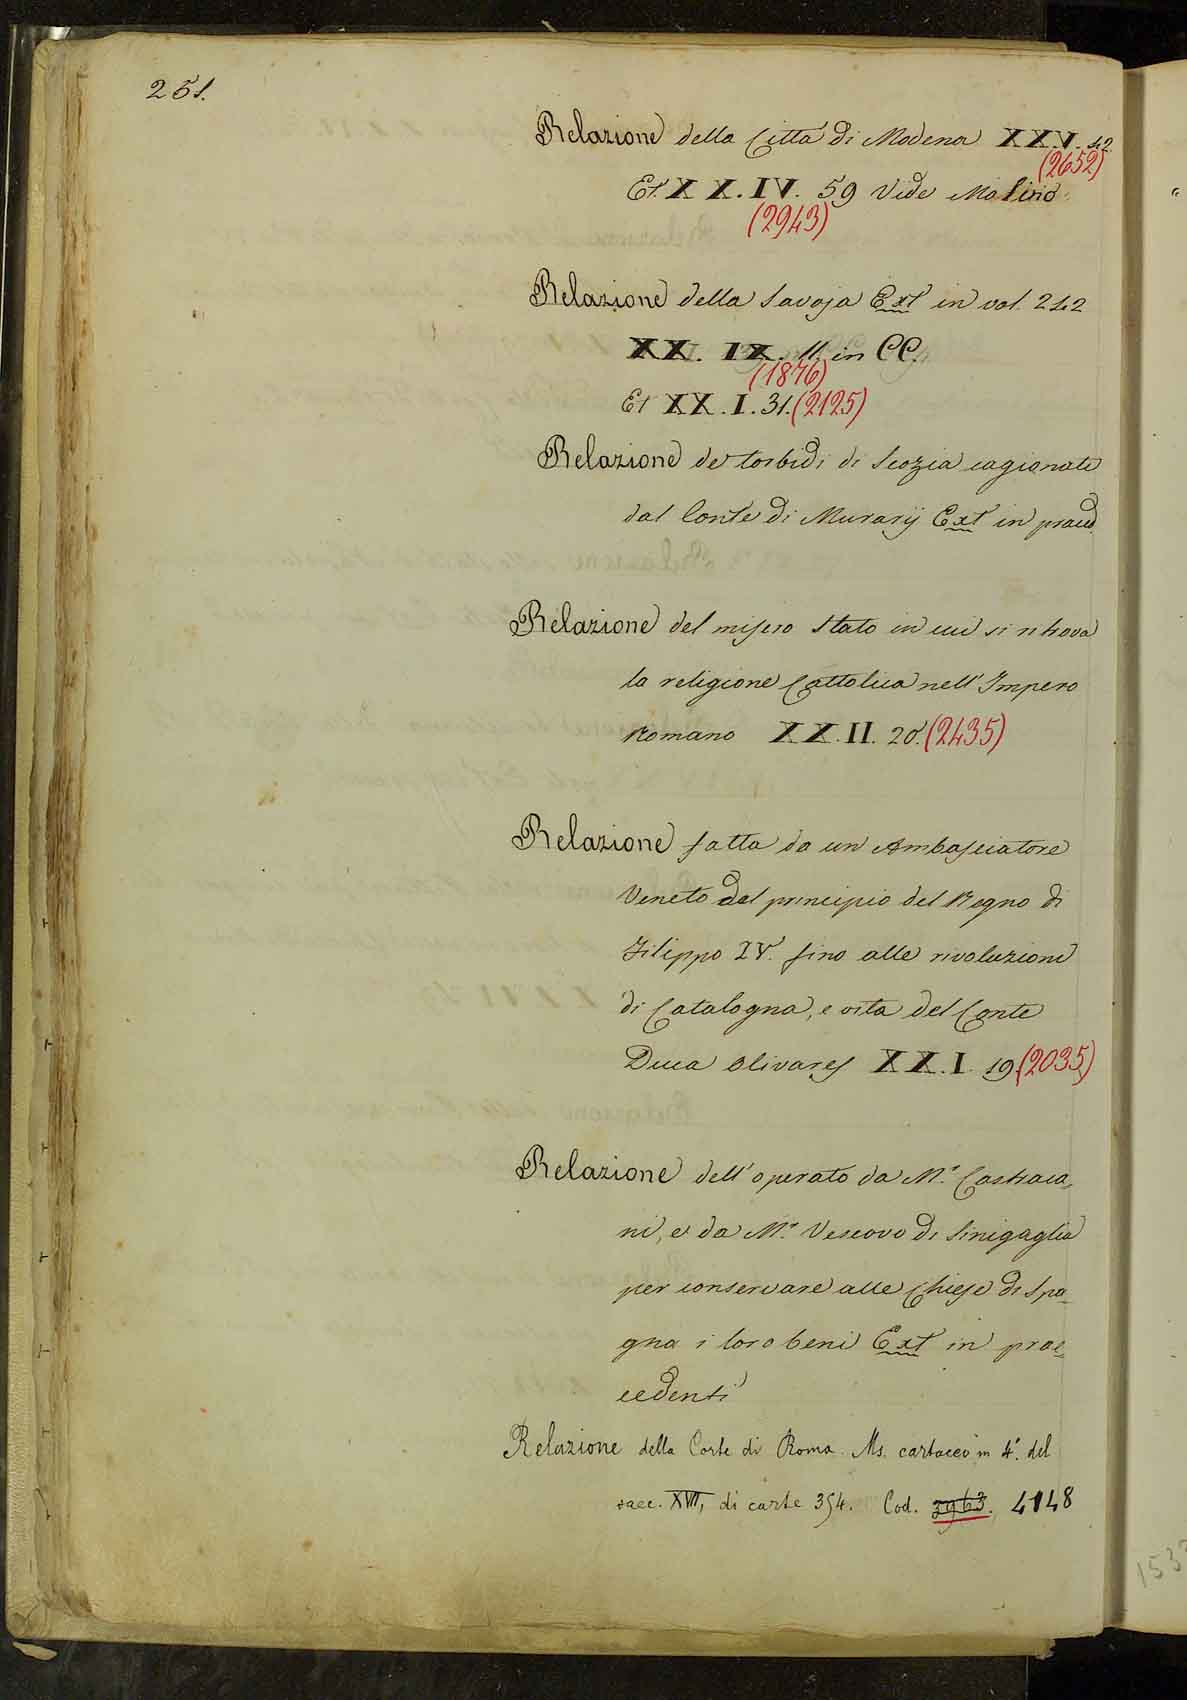 251.
Relazione della Città di Modena XXV. 42.
(2652)
Et. XX.IV. 59 Vide Molino
(2943)
Relazione della Savoja Ext in vol. 242
XX. IX. 11. in CC.
(1876)
Et XX.I.31. (2125)
Relazione de' torbidi di Scozia cagionate
dal Conte di Murarij Ext in praed.
Relazione del misero stato in cui si ritrova
la religione Cattolica nell' Impero
Romano XX.II. 20. (2435)
Relazione fatta da un Ambasciatore
Veneto dal principio del Regno di
Filippo IV. fino alle rivoluzioni
di Catalogna, e vita del Conte
Duca Olivares XX.I. 19. (2035)
Relazione dell' operato da M.r Castraca,
ni, e da M.r Vescovo di Sinigaglia
per conservare alle Chiese di Spa-
gna i loro beni Ext in prae-
cedenti
Relazione della Corte di Roma. Ms. cartaceo in 4.° del
saec. XVII, di carte 354. Cod. 3963. 4148